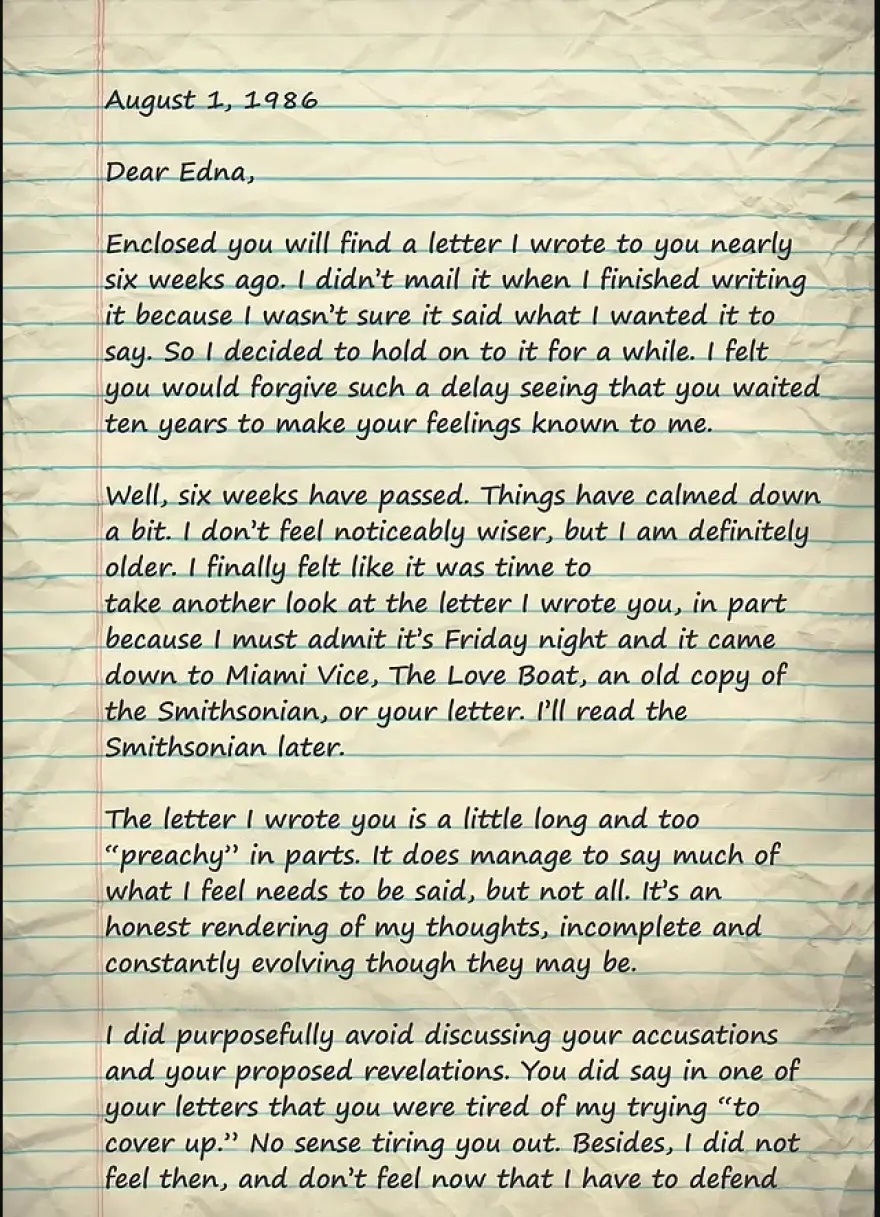 August 1, 1986
Dear Edna,
Enclosed you will find a letter I wrote to you nearly
six weeks ago. I didn't mail it when I finished writing
it because I wasn't sure it said what I wanted it to
say. So I decided to hold on to it for a while. I felt
you would forgive such a delay seeing that you waited
ten years to make your feelings known to me.
Well, six weeks have passed. Things have calmed down
a bit. I don't feel noticeably wiser, but I am definitely
older. I finally felt like it was time to
take another look at the letter I wrote you, in part
because I must admit it's Friday night and it came
down to Miami Vice, The Love Boat, an old copy of
the Smithsonian, or your letter. I'll read the
Smithsonian later.
The letter I wrote you is a little long and too
“preachy” in parts. It does manage to say much of
what I feel needs to be said, but not all. It's an
honest rendering of my thoughts, incomplete and
constantly evolving though they may be.
I did purposefully avoid discussing your accusations
and your proposed revelations. You did say in one of
your letters that you were tired of my trying “to
cover up.” No sense tiring you out. Besides, I did not
feel then, and don't feel now that I have to defend